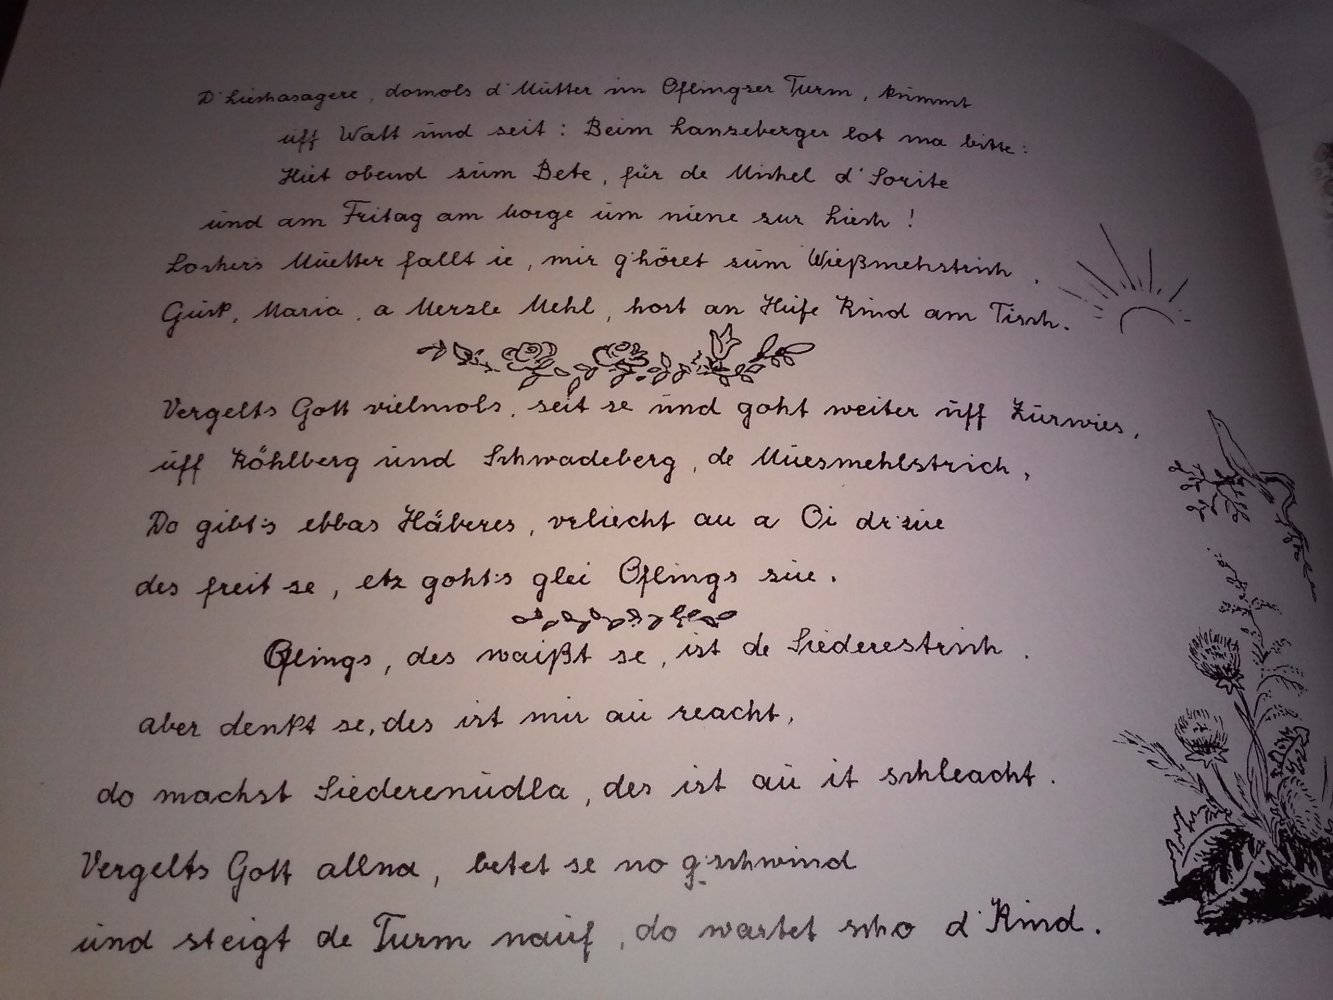 D'Liechasagere, domols d'Mutter im Oflingser Turm, kummt
uff Watt und seit: Beim Lanzeberger lot ma bitte:
Hiet obend zum Bete, für de Michel d'Sorite
und am Fritag am Morge um niene zur Liech!
Locher's Muetter fallt ie, mir g'höret zum Wießmehstrich,
Guck, Maria, a Merzle Mehl, host an Hufe Kind am Tisch.
Vergelts Gott vielmols, seit se und goht weiter uff Zurwies,
uff Köhlberg und Schwadeberg, de Muesmehlstrich,
Do gibt's ebbas Häberes, vrliecht au a Oi dr'zue
des freit se, etz goht's glei Oflings zue.
Oflings, des waißt se, ist de Siederestrich.
aber denkt se, des ist mir au reacht,
do machst Siederenudla, des ist au it schleacht.
Vergelts Gott allna, betet se no g'schwind
und steigt de Turm nauf, do wartet scho d'Kind.